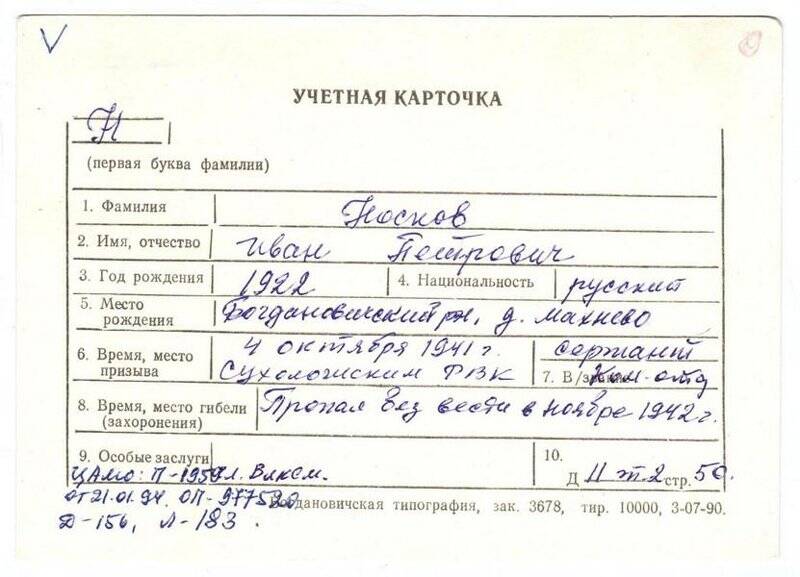 V
УЧЕТНАЯ КАРТОЧКА
Н
(первая буква фамилии)
1. Фамилия Носков
2. Имя, отчество Иван Петрович
3. Год рождения 1922 4. Национальность русский
5. Место рождения Богдановичский рн, д. Махнево
6. Время, место призыва 4 октября 1941 г. Сухоложским РВК
сержант
7. В/звание Ком-отд
8. Время, место гибели (захоронения) Пропал без вести в ноябре 1942 г.
9. Особые заслуги чл. Влксм.
10. Д II т 2 стр. 50.
ЦАМО: П-1959
от 21.01.94. ОП-977520
Д-156, Л-183.
Богдановичская типография, зак. 3678, тир. 10000, 3-07-90.